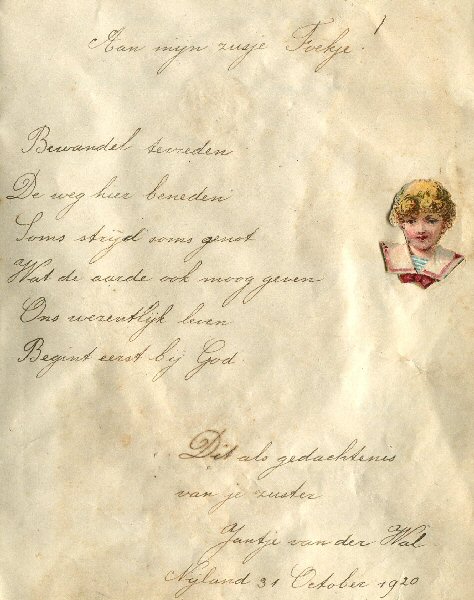 Aan mijn zusje Foekje.
Bewandel tevreden
De weg hier beneden
Soms strijd soms genot
Wat de aarde ook moog geven
Ons wezentlijk leven
Begint eerst bij God.
Dit als gedachtenis
van je zuster
Jantje van der Wal
Nyland 31 October 1920